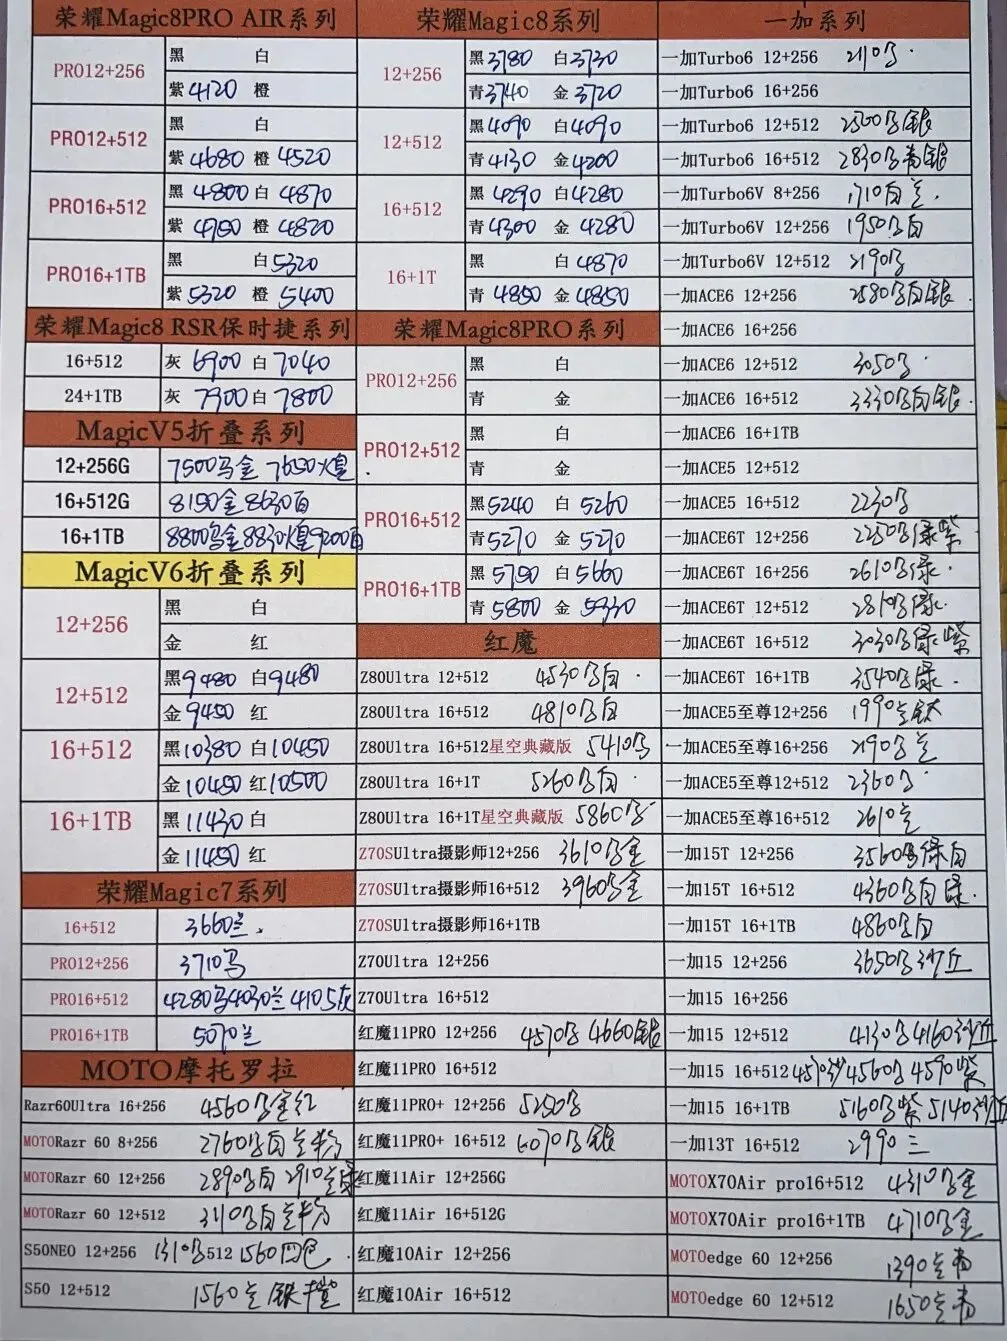 荣耀Magic8PRO AIR系列
PRO12+256 黑 白
紫4120 橙
PRO12+512 黑 白
紫4680 橙4520
PRO16+512 黑4800 白4870
紫4750 橙4820
PRO16+1TB 黑 白5320
紫5320 橙5400
荣耀Magic8 RSR保时捷系列
16+512 灰6900 白7040
24+1TB 灰7900 白7800
MagicV5折叠系列
12+256G 7500 金 7650
16+512G 8150金 8630白
16+1TB 8800 金 8830 9200白
MagicV6折叠系列
12+256 黑 白
金 红
12+512 黑9480 白9480
金9450 红
16+512 黑10380 白10450
金10450 红10500
16+1TB 黑11430 白
金11450 红
荣耀Magic7系列
16+512 3660兰.
PRO12+256 3710
PRO16+512 4280 4030兰 4105灰
PRO16+1TB 5070兰
MOTO摩托罗拉
Razr60Ultra 16+256 4560 金红
MOTORazr 60 8+256 2760 白
MOTORazr 60 12+256 2890 白 2910
MOTORazr 60 12+512 3110 白
S50NEO 12+256 1310 512 1560四色.
S50 12+512 1560
荣耀Magic8系列
12+256 黑3780 白3730
青3740 金3720
12+512 黑4090 白4090
青4130 金4200
16+512 黑4290 白4280
青4300 金4280
16+1T 黑 白4870
青4850 金4850
荣耀Magic8PRO系列
PRO12+256 黑 白
青 金
PRO12+512 黑 白
青 金
PRO16+512 黑5240 白5260
青5270 金5270
PRO16+1TB 黑5750 白5660
青5800 金5330
红魔
Z80Ultra 12+512 4530 白
Z80Ultra 16+512 4810 白
Z80Ultra 16+512星空典藏版 5410
Z80Ultra 16+1T 5260 白
Z80Ultra 16+1T星空典藏版 5860
Z70SUltra摄影师12+256 3610 金
Z70SUltra摄影师16+512 3960 金
Z70SUltra摄影师16+1TB
Z70Ultra 12+256
Z70Ultra 16+512
红魔11PRO 12+256 4570 4660银
红魔11PRO 16+512
红魔11PRO+ 12+256 5250
红魔11PRO+ 16+512 6070 银
红魔11Air 12+256G
红魔11Air 16+512G
红魔10Air 12+256
红魔10Air 16+512
一加系列
一加Turbo6 12+256 2110
一加Turbo6 16+256
一加Turbo6 12+512 2500 银
一加Turbo6 16+512 2830 青银
一加Turbo6V 8+256 1710
一加Turbo6V 12+256 1950 白
一加Turbo6V 12+512 2190
一加ACE6 12+256 2580 白银
一加ACE6 16+256
一加ACE6 12+512 3050
一加ACE6 16+512 3330 白银.
一加ACE6 16+1TB
一加ACE5 12+512
一加ACE5 16+512 2230
一加ACE6T 12+256 2250 绿紫
一加ACE6T 16+256 2610 绿.
一加ACE6T 12+512 2810 绿.
一加ACE6T 16+512 3030 绿紫
一加ACE6T 16+1TB 3540 绿.
一加ACE5至尊12+256 1990 钛
一加ACE5至尊16+256 2190
一加ACE5至尊12+512 2360
一加ACE5至尊16+512 2610
一加15T 12+256 3560 绿白
一加15T 16+512 4360 白绿.
一加15T 16+1TB 4860 白
一加15 12+256 3650 沙丘
一加15 16+256
一加15 12+512 4130 4160沙丘
一加15 16+512 4570沙 4560 4590紫
一加15 16+1TB 5160 紫 5140沙丘
一加13T 16+512 2990
MOTOX70Air pro16+512 4310 金
MOTOX70Air pro16+1TB 4710 金
MOTOedge 60 12+256 1390
MOTOedge 60 12+512 1650